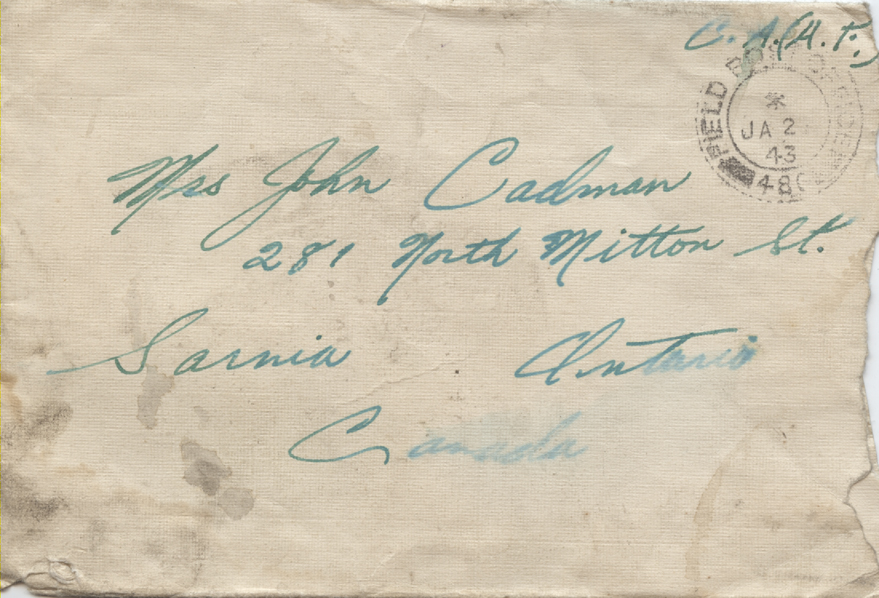 C. A.(A. F.)
FIELD POST OFFICE
JA 2
43
480
Mrs John Cadman
281 North Mitton St.
Sarnia Ontario
Canada